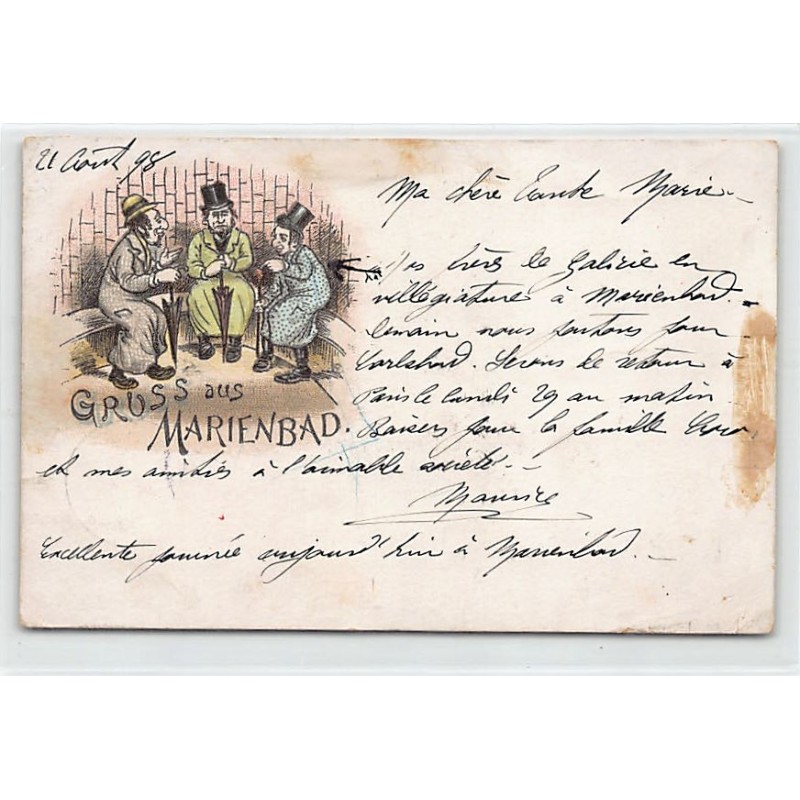 21 Août 98
Ma chère Tante Marie -
Nos frères de Galicie en
villégiature à Marienbad. -
Demain nous partons pour
Carlsbad. Serons de retour à
Paris le lundi 29 au matin.
Baisers pour la famille
et mes amitiés à l'aimable société. -
Maurice
Excellente journée aujourd'hui à Marienbad. -
GRUSS aus
MARIENBAD.